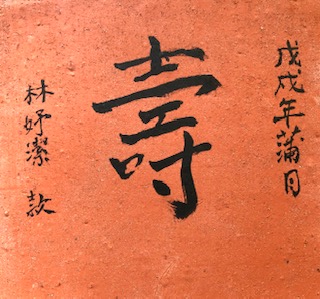 戊戌年蒲月
壽
林妤潔 敬